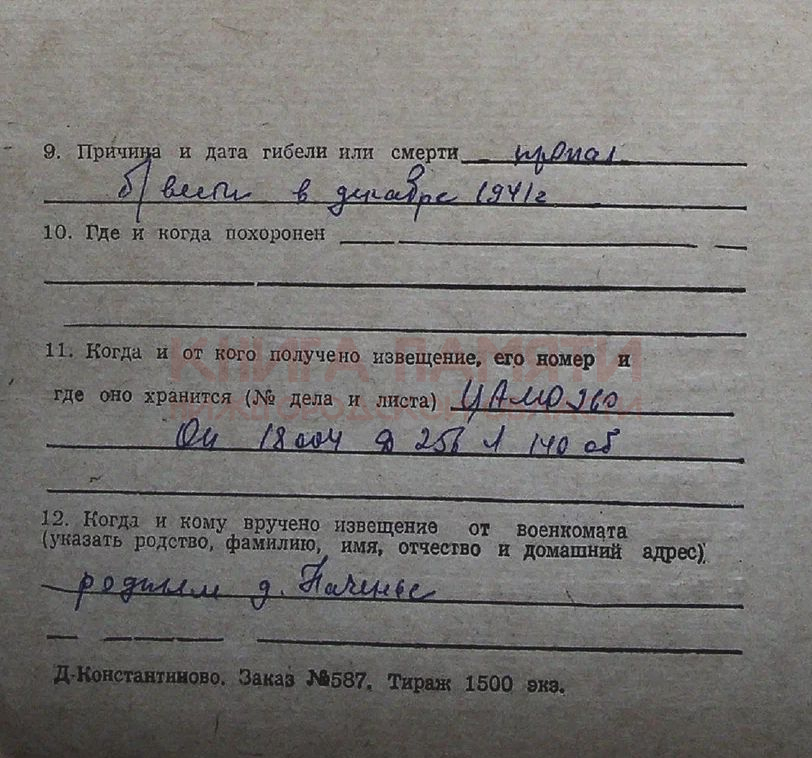 9. Причина и дата гибели или смерти пропал
б/вести в декабре 1941г
10. Где и когда похоронен
КНИГА ПАМЯТИ
НИЖЕГОРОДСКОЙ ОБЛАСТИ
11. Когда и от кого получено извещение, его номер и
где оно хранится (№ дела и листа) ЦАМО
Оп 18004 Д 256 Л 140 об
12. Когда и кому вручено извещение от военкомата
(указать родство, фамилию, имя, отчество и домашний адрес)
родным д.
Д-Константиново. Заказ №587. Тираж 1500 экз.